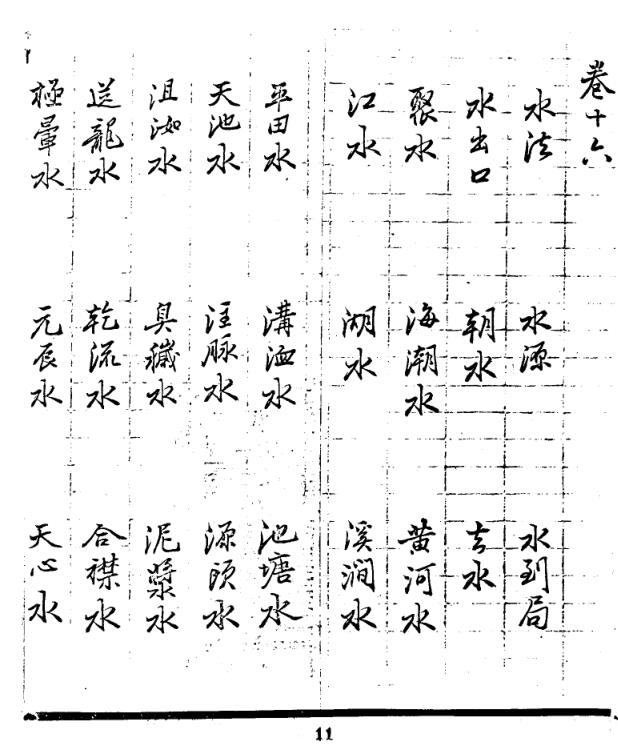 卷十六
水法 水源 水到局
水出口 朝水 去水
聚水 海潮水 黄河水
江水 湖水 溪澗水
平田水 溝洫水 池塘水
天池水 注脉水 源頭水
沮洳水 臭穢水 泥漿水
送龍水 乾流水 合襟水
極暈水 元辰水 天心水
11